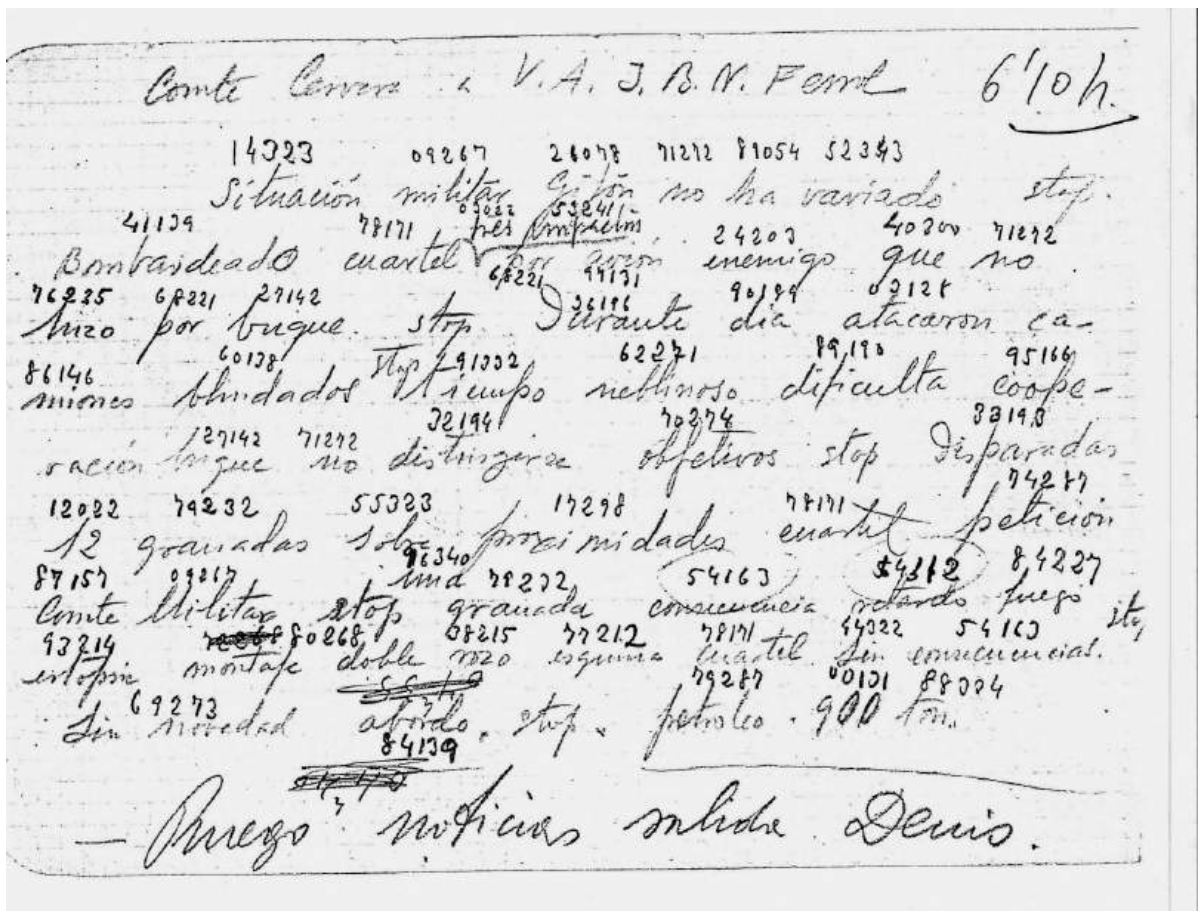 Comte Cervera a V.A. J.B.N. Ferrol 6'10 h.
14323 09267 26078 71272 81054 52343
Situación militar Gijón no ha variado stop.
41139 78171 03022 53241 24203 40300 71272
tres impactos
Bombardeado cuartel por avión enemigo que no
68221 97131
76235 68221 27142 36196 90189 03128
hizo por buque. stop Durante día ataca­ron ca-
86146 60138 stop 91332 62271 89190 95166
miones blindados tiempo neblinoso dificulta coope-
27142 71272 32194 70274 33193
ración buque no distinguirse objetivos stop Disparadas
12022 79232 55323 17298 78171 74287
12 granadas sobre proximidades cuartel petición
87157 09267 96340 78232 54163 54312 84227
una
Comte Militar stop granada consecuencia retardo fuego stop
93214 80268 08215 77212 78171 44322 54163
montaje doble rozo esquina cuartel sin consecuencias.
69273 79287 00131 88004
Sin novedad abordo. stop. petroleo. 900 ton.
84139
— Ruego noticias salida Denis.